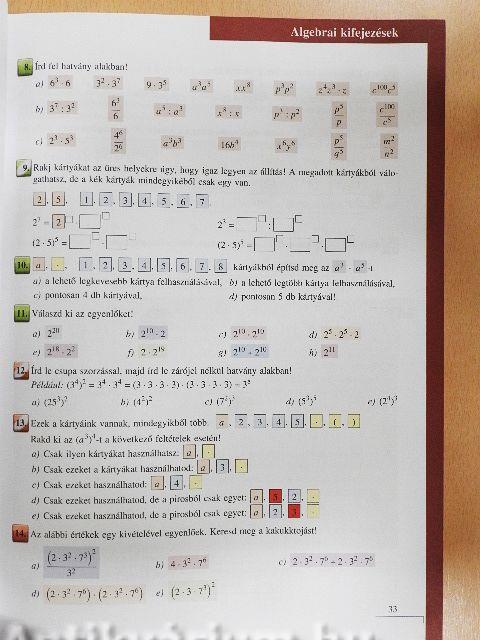 Algebrai kifejezések
8. Írd fel hatvány alakban!
a) 6³ · 6 3² · 3⁷ 9 · 3⁵ a³a⁵ xx⁸ p³p² z⁴z³ · z c¹⁰⁰c⁵
b) 3⁷ : 3² 6³/6 a⁵ : a³ x⁸ : x p³ : p² p⁵/p c¹⁰⁰/c⁵
c) 2³ · 5³ 4⁶/2⁶ a³b³ 16b⁴ x⁶y⁶ p⁵/q⁵ m²/n²
9. Rakj kártyákat az üres helyekre úgy, hogy igaz legyen az állítás! A megadott kártyákból válo-
gathatsz, de a kék kártyák mindegyikéből csak egy van.
2, 5, 1, 2, 3, 4, 5, 6, 7
10. a, ·, 1, 2, 3, 4, 5, 6, 7, 8 kártyákból építsd meg az a³ · a⁵-t
a) a lehető legkevesebb kártya felhasználásával, b) a lehető legtöbb kártya felhasználásával,
c) pontosan 4 db kártyával, d) pontosan 5 db kártyával!
11. Válaszd ki az egyenlőket!
a) 2²⁰ b) 2¹⁰ · 2 c) 2¹⁰ · 2¹⁰ d) 2⁵ · 2⁵ · 2
e) 2¹⁸ · 2² f) 2 · 2¹⁹ g) 2¹⁰ + 2¹⁰ h) 2¹¹
12. Írd le csupa szorzással, majd írd le zárójel nélkül hatvány alakban!
Például: (3⁴)² = 3⁴ · 3⁴ = (3 · 3 · 3 · 3) · (3 · 3 · 3 · 3) = 3⁸
a) (25³)² b) (4²)² c) (7²)³ d) (5³)⁵ e) (2⁴)³
13. Ezek a kártyáink vannak, mindegyikből több. a, 2, 3, 4, 5, ·, (, )
Rakd ki az (a³)⁴-t a következő feltételek esetén!
a) Csak ilyen kártyákat használhatsz: a, ·
b) Csak ezeket a kártyákat használhatod: a, 3, ·
c) Csak ezeket használhatod: a, 4, ·
d) Csak ezeket használhatod, de a pirosból csak egyet: a, 5, 2, ·
e) Csak ezeket használhatod, de a pirosból csak egyet: a, 2, 3, ·
14. Az alábbi értékek egy kivételével egyenlőek. Keresd meg a kakukktojást!
a) (2 · 3² · 7³)²/3² b) 4 · 3² · 7⁶ c) 2 · 3² · 7⁶ + 2 · 3² · 7⁶
d) (2 · 3² · 7⁶) · (2 · 3² · 7⁶) e) (2 · 3 · 7³)²
33